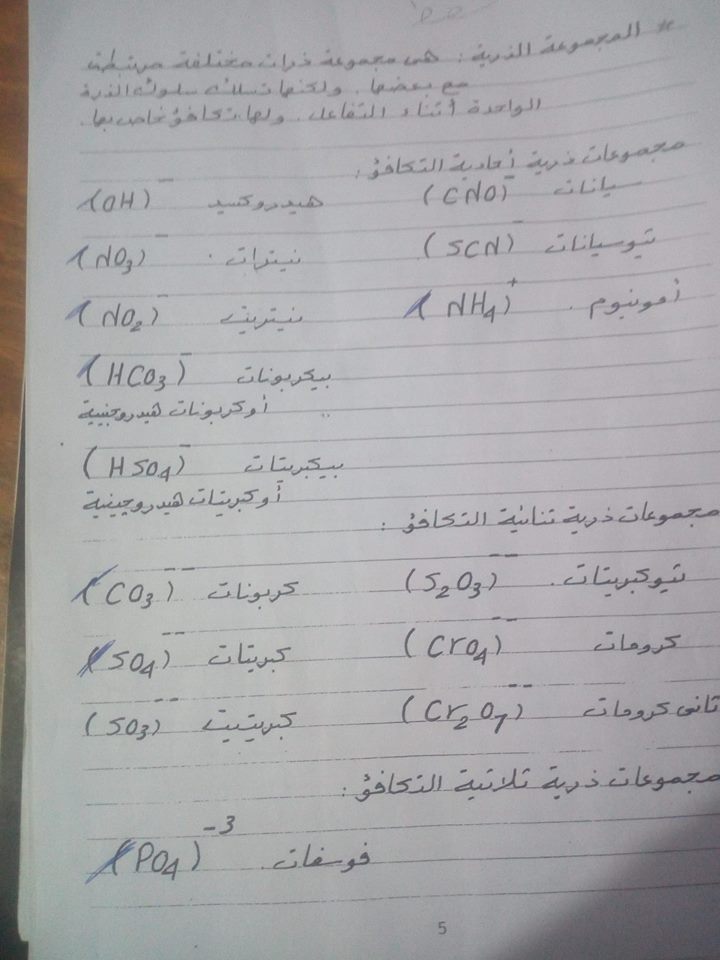 * المجموعة الذرية : هى مجموعة ذرات مختلفة مرتبطة
مع بعضها . ولكنها تسلك سلوك الذرة
الواحدة أثناء التفاعل . ولها تكافؤ خاص بها .
مجموعات ذرية أحادية التكافؤ :
سيانات (CNO)⁻ هيدروكسيد (OH)⁻
ثيوسيانات (SCN)⁻ نيترات . (NO₃)⁻
أمونيوم . (NH₄)⁺ نيتريت (NO₂)⁻
بيكربونات (HCO₃)⁻
أو كربونات هيدروجينية
بيكبريتات (HSO₄)⁻
أو كبريتات هيدروجينية
مجموعات ذرية ثنائية التكافؤ :
ثيوكبريتات . (S₂O₃)⁻⁻ كربونات (CO₃)⁻⁻
كرومات (CrO₄)⁻⁻ كبريتات (SO₄)⁻⁻
ثانى كرومات (Cr₂O₇)⁻⁻ كبريتيت (SO₃)⁻⁻
مجموعات ذرية ثلاثية التكافؤ :
فوسفات (PO₄)⁻³
5